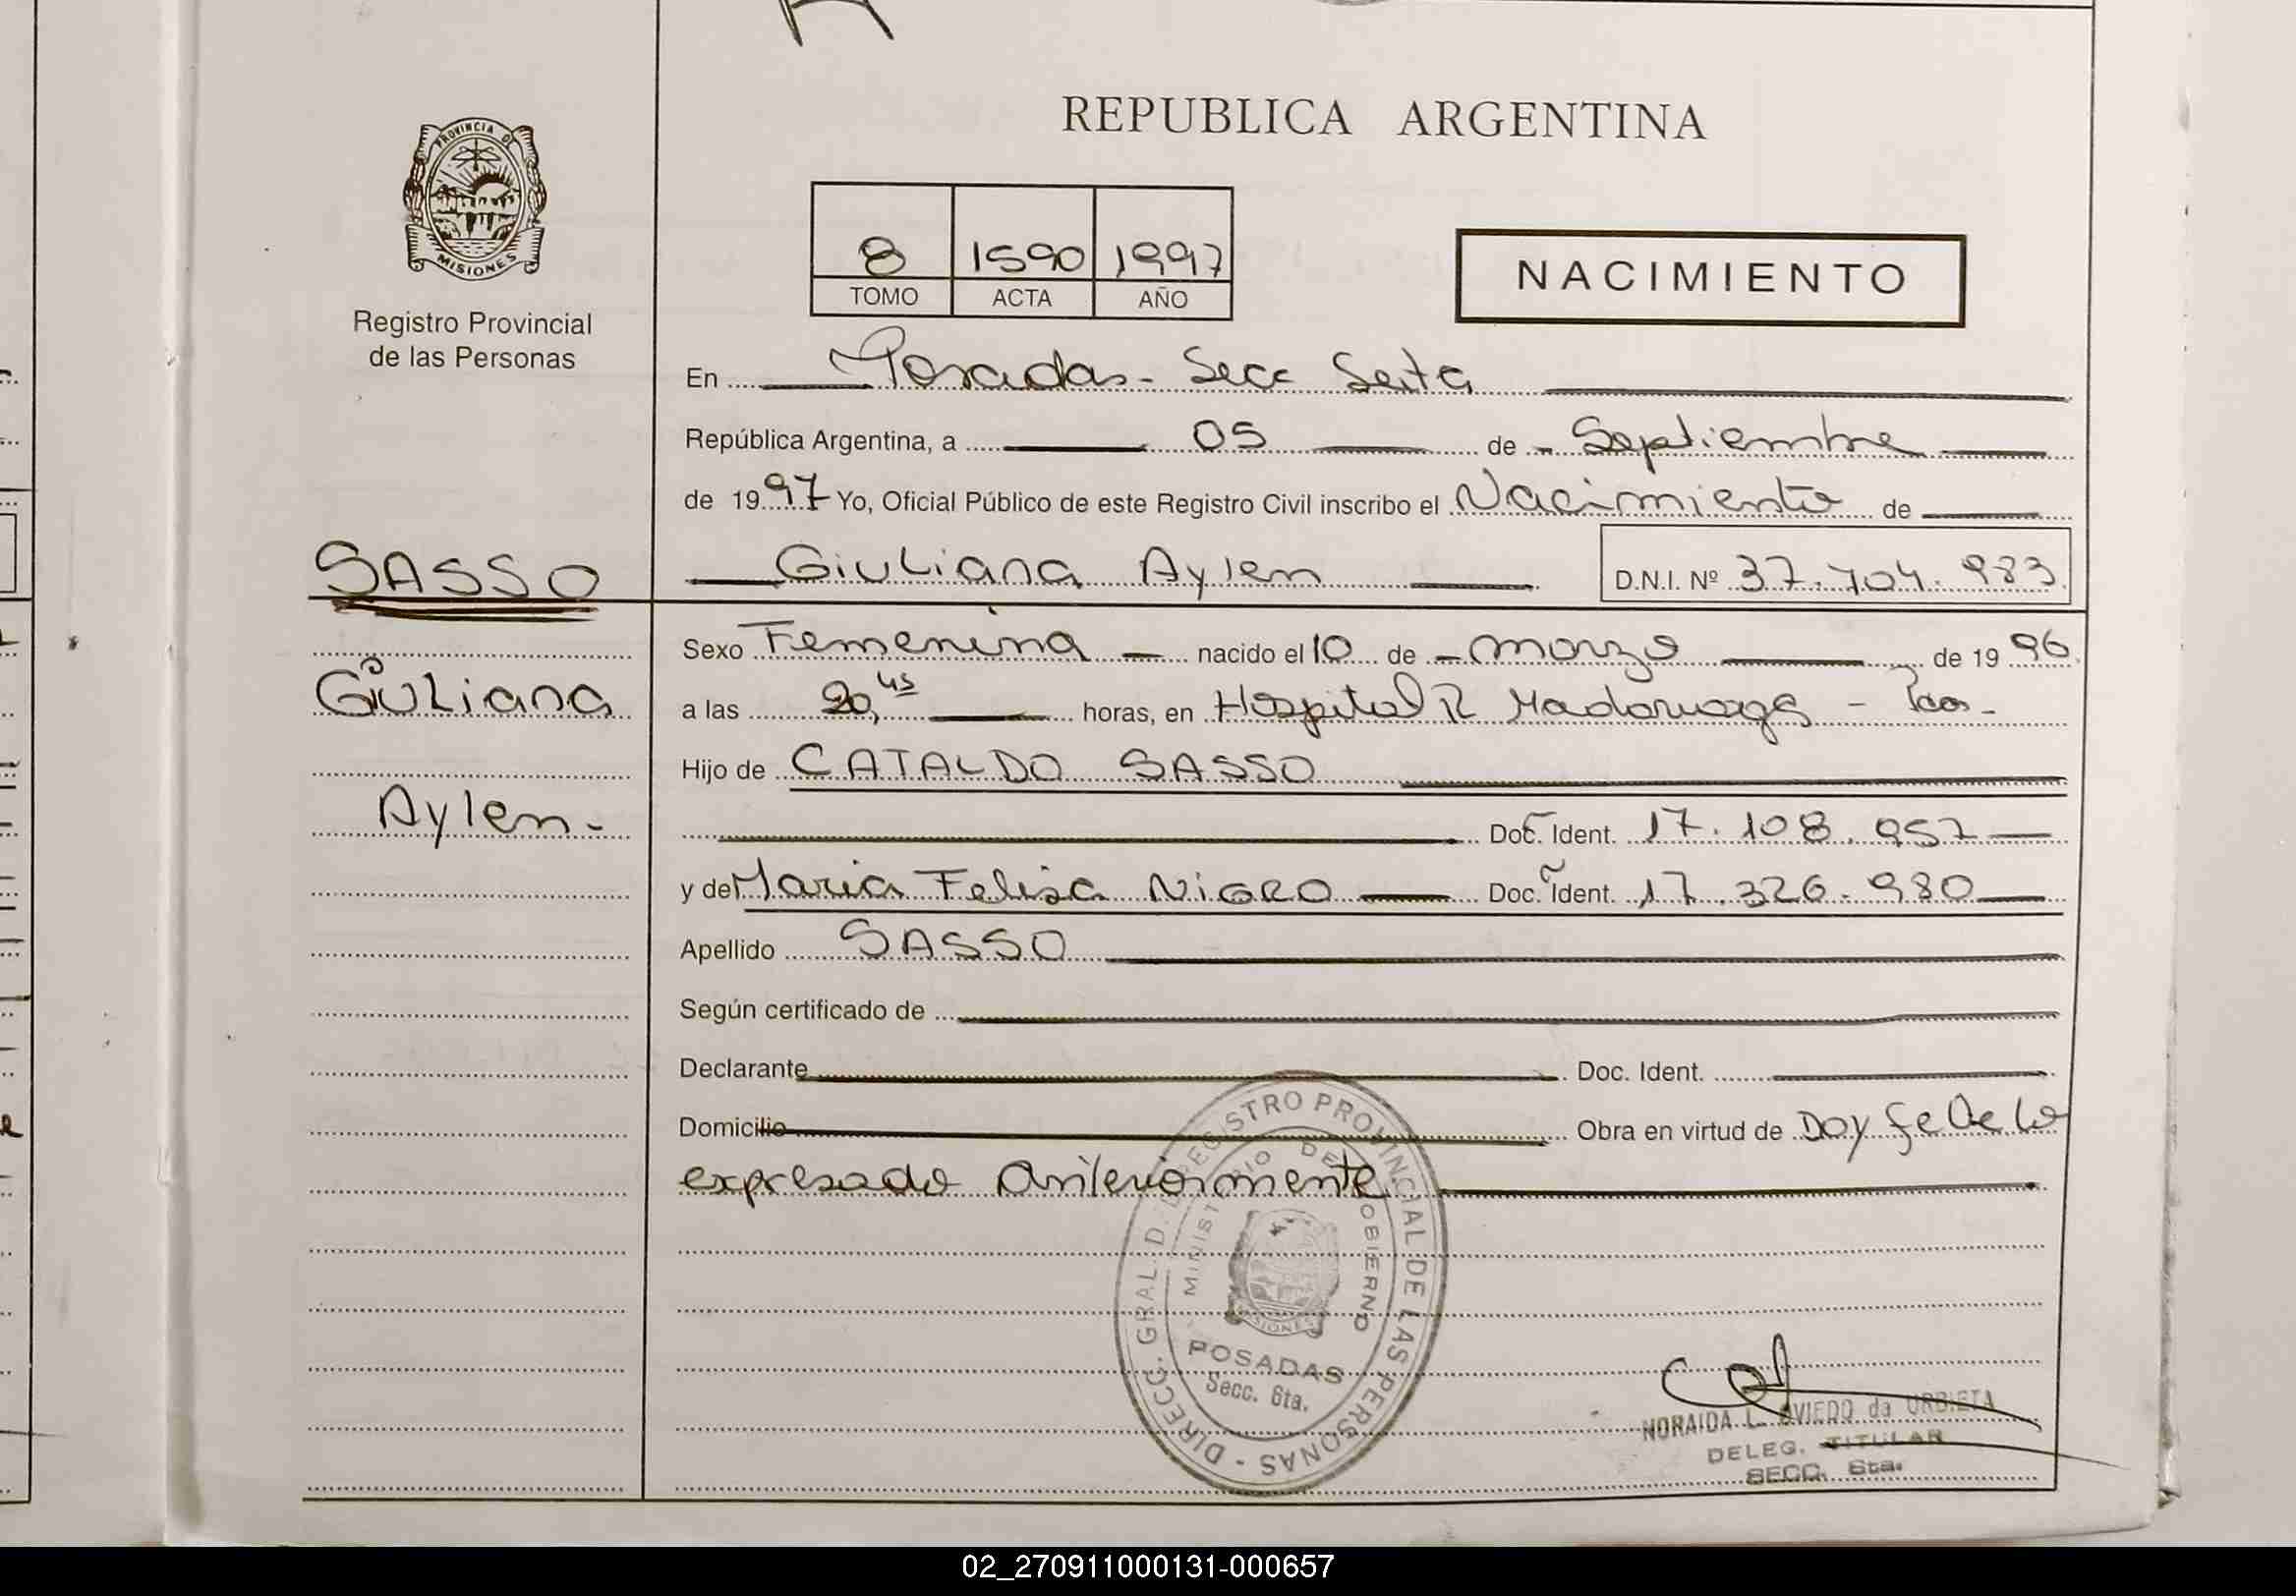 REPUBLICA ARGENTINA
PROVINCIA DE
MISIONES
Registro Provincial
de las Personas
8 1590 1997
TOMO ACTA AÑO
NACIMIENTO
En Posadas - Secc Sexta
República Argentina, a 05 de Septiembre
de 1997 Yo, Oficial Público de este Registro Civil inscribo el Nacimiento de
SASSO
Giuliana Aylen D.N.I. Nº 37.704.983
Sexo Femenina nacido el 10 de marzo de 1996
Giuliana
a las 20,45 horas, en Hospital R Madariaga -
Hijo de CATALDO SASSO
Aylen-
Doc. Ident. 17.108.957
y de Maria Felisa NiGRO Doc. Ident. 17.326.980
Apellido SASSO
Según certificado de
Declarante Doc. Ident.
Domicilio Obra en virtud de Doy fe de lo
expresado anteriormente
DIRECC. GRAL. D. REGISTRO PROVINCIAL DE LAS PERSONAS -
MINISTERIO DE GOBIERNO
MISIONES
POSADAS
Secc. 6ta.
NORAIDA L. OVIEDO de URBIETA
DELEG. TITULAR
SECC. 6ta.
02_270911000131-000657